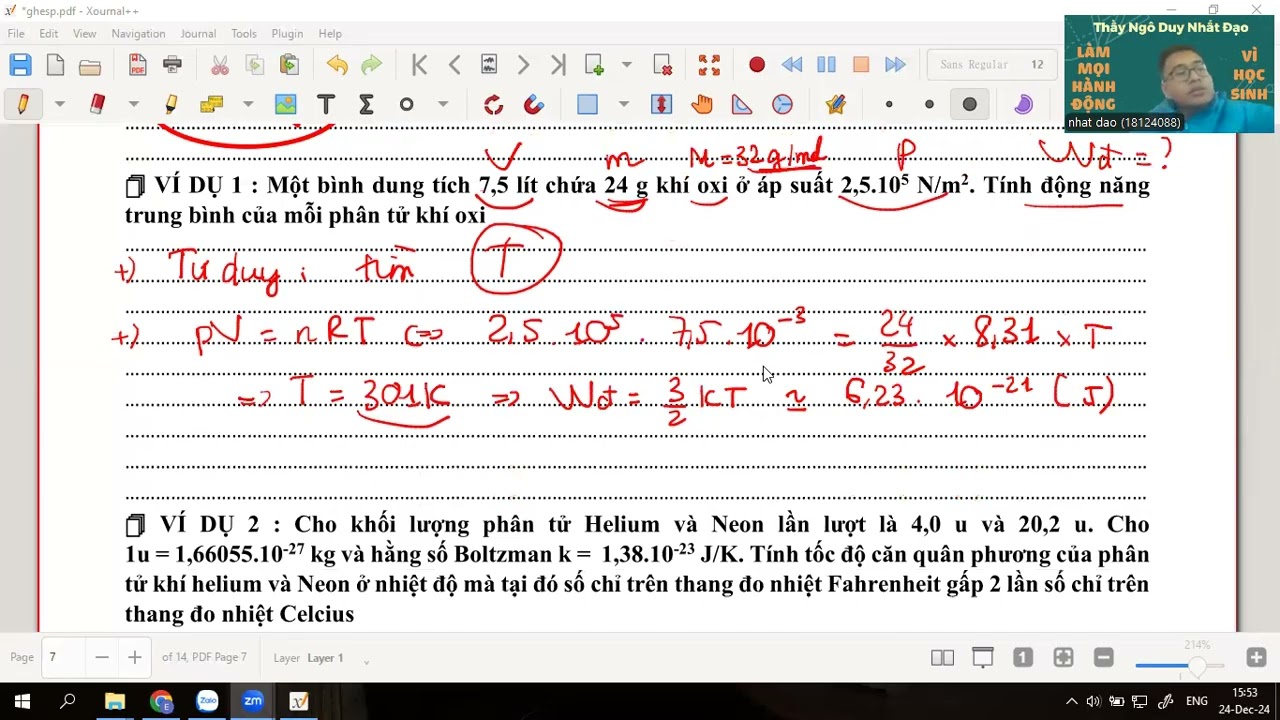 *ghesp.pdf - Xournal++
File Edit View Navigation Journal Tools Plugin Help
Sans Regular 12
Thầy Ngô Duy Nhất Đạo
LÀM MỌI HÀNH ĐỘNG
VÌ HỌC SINH
nhat dao (18124088)
V m M = 32 g/mol p Wđ = ?
VÍ DỤ 1 : Một bình dung tích 7,5 lít chứa 24 g khí oxi ở áp suất 2,5.10⁵ N/m². Tính động năng
trung bình của mỗi phân tử khí oxi
+) Tư duy : tìm T
+) pV = nRT <=> 2,5.10⁵ . 7,5.10⁻³ = 24/32 × 8,31 × T
=> T = 301K => Wđ = 3/2 KT ≈ 6,23.10⁻²¹ (J)
VÍ DỤ 2 : Cho khối lượng phân tử Helium và Neon lần lượt là 4,0 u và 20,2 u. Cho
1u = 1,66055.10⁻²⁷ kg và hằng số Boltzman k = 1,38.10⁻²³ J/K. Tính tốc độ căn quân phương của phân
tử khí helium và Neon ở nhiệt độ mà tại đó số chỉ trên thang đo nhiệt Fahrenheit gấp 2 lần số chỉ trên
thang đo nhiệt Celcius
Page 7 of 14, PDF Page 7 Layer Layer 1
214%
ENG
15:53
24-Dec-24